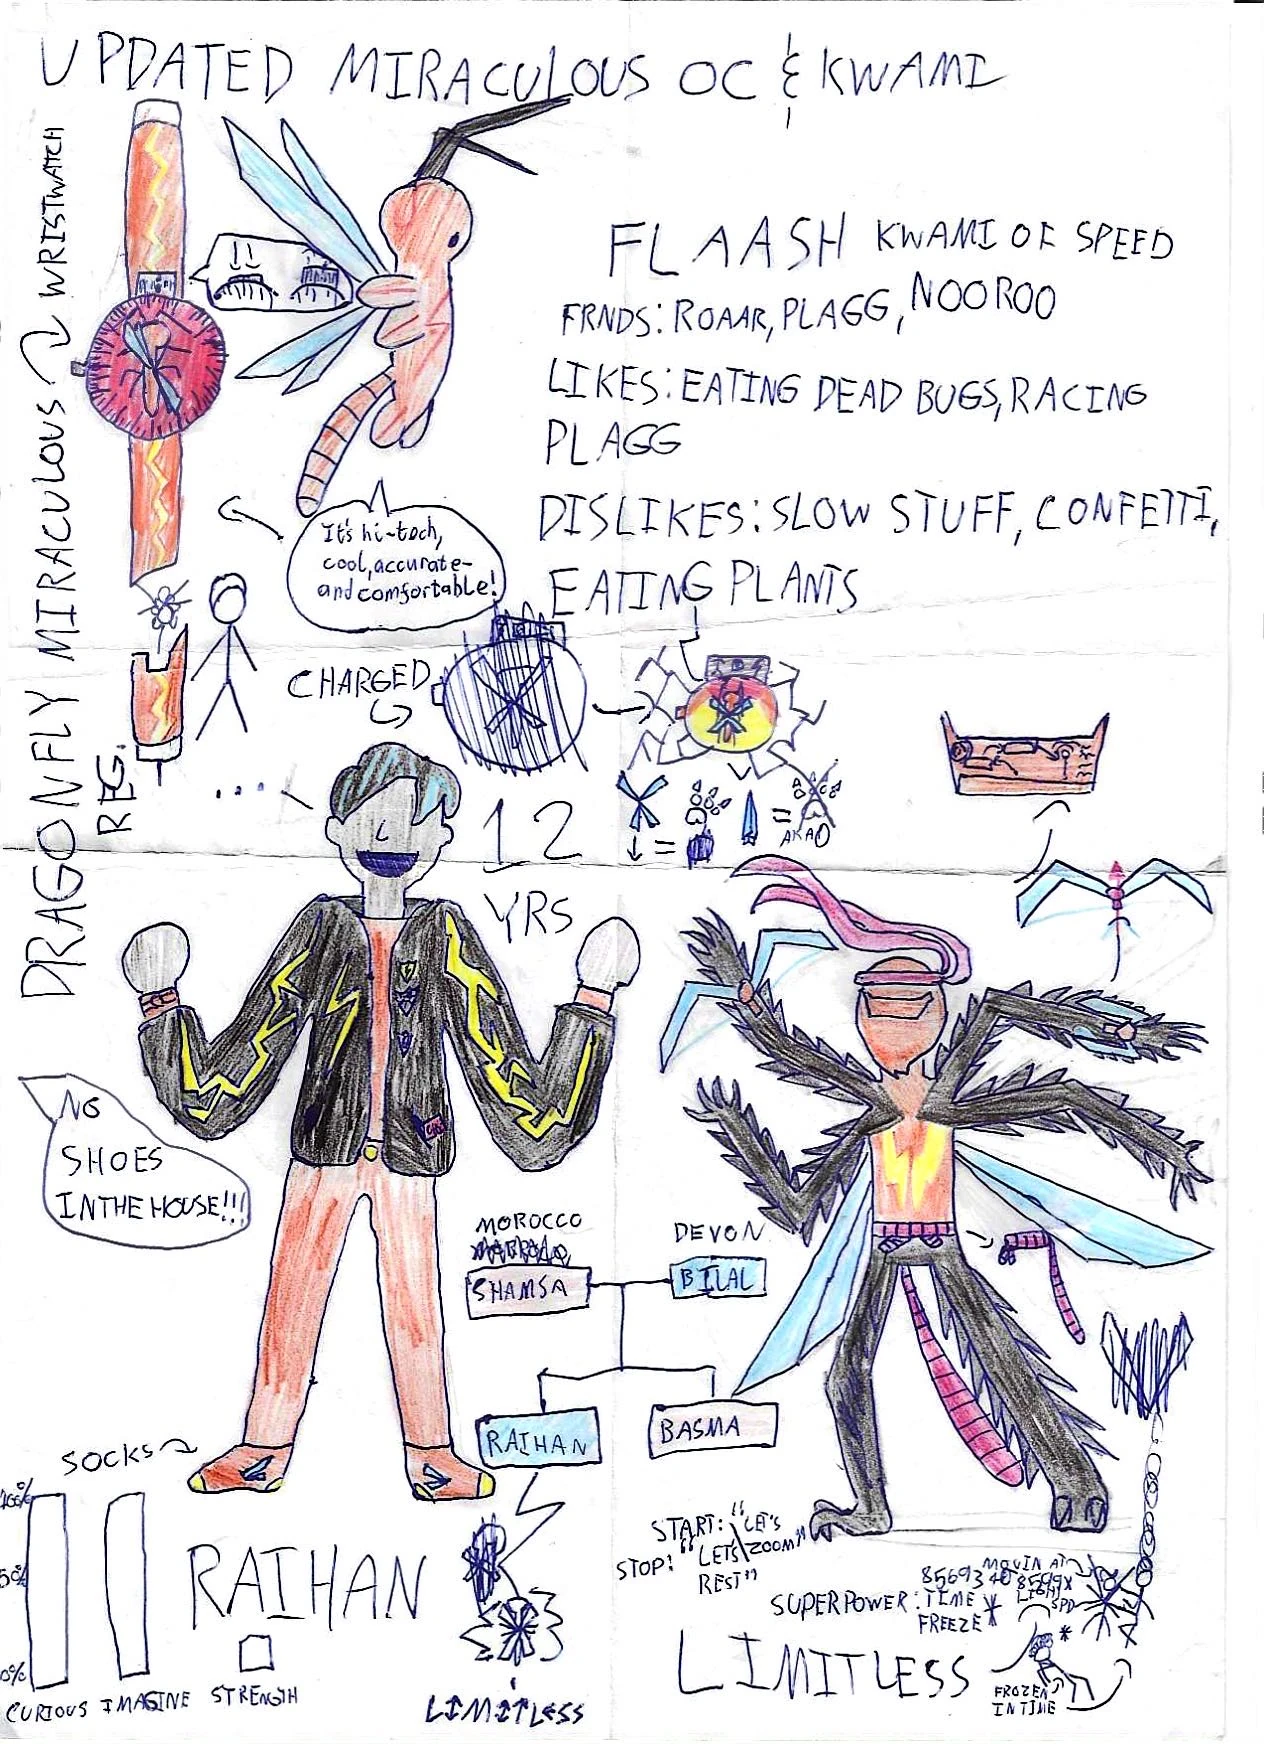 UPDATED MIRACULOUS OC & KWAMI
DRAGONFLY MIRACULOUS
WRISTWATCH
REG.
FLAASH KWAMI OF SPEED
FRNDS: ROAAR, PLAGG, NOOROO
LIKES: EATING DEAD BUGS, RACING
PLAGG
DISLIKES: SLOW STUFF, CONFETTI,
EATING PLANTS
It's hi-tech,
cool, accurate-
and comfortable!
CHARGED
....
12
YRS
=
=
NO
SHOES
IN THE HOUSE!!!
MOROCCO
SHAMSA
DEVON
BILAL
RAIHAN
BASMA
SOCKS
100%
50%
0%
CURIOUS
IMAGINE
STRENGTH
RAIHAN
LIMITLESS
START: "LET'S
ZOOM"
STOP: "LETS
REST"
SUPERPOWER: TIME
FREEZE*
MOVIN AT
LIGHT
SPD
*
FROZEN
IN TIME
LIMITLESS